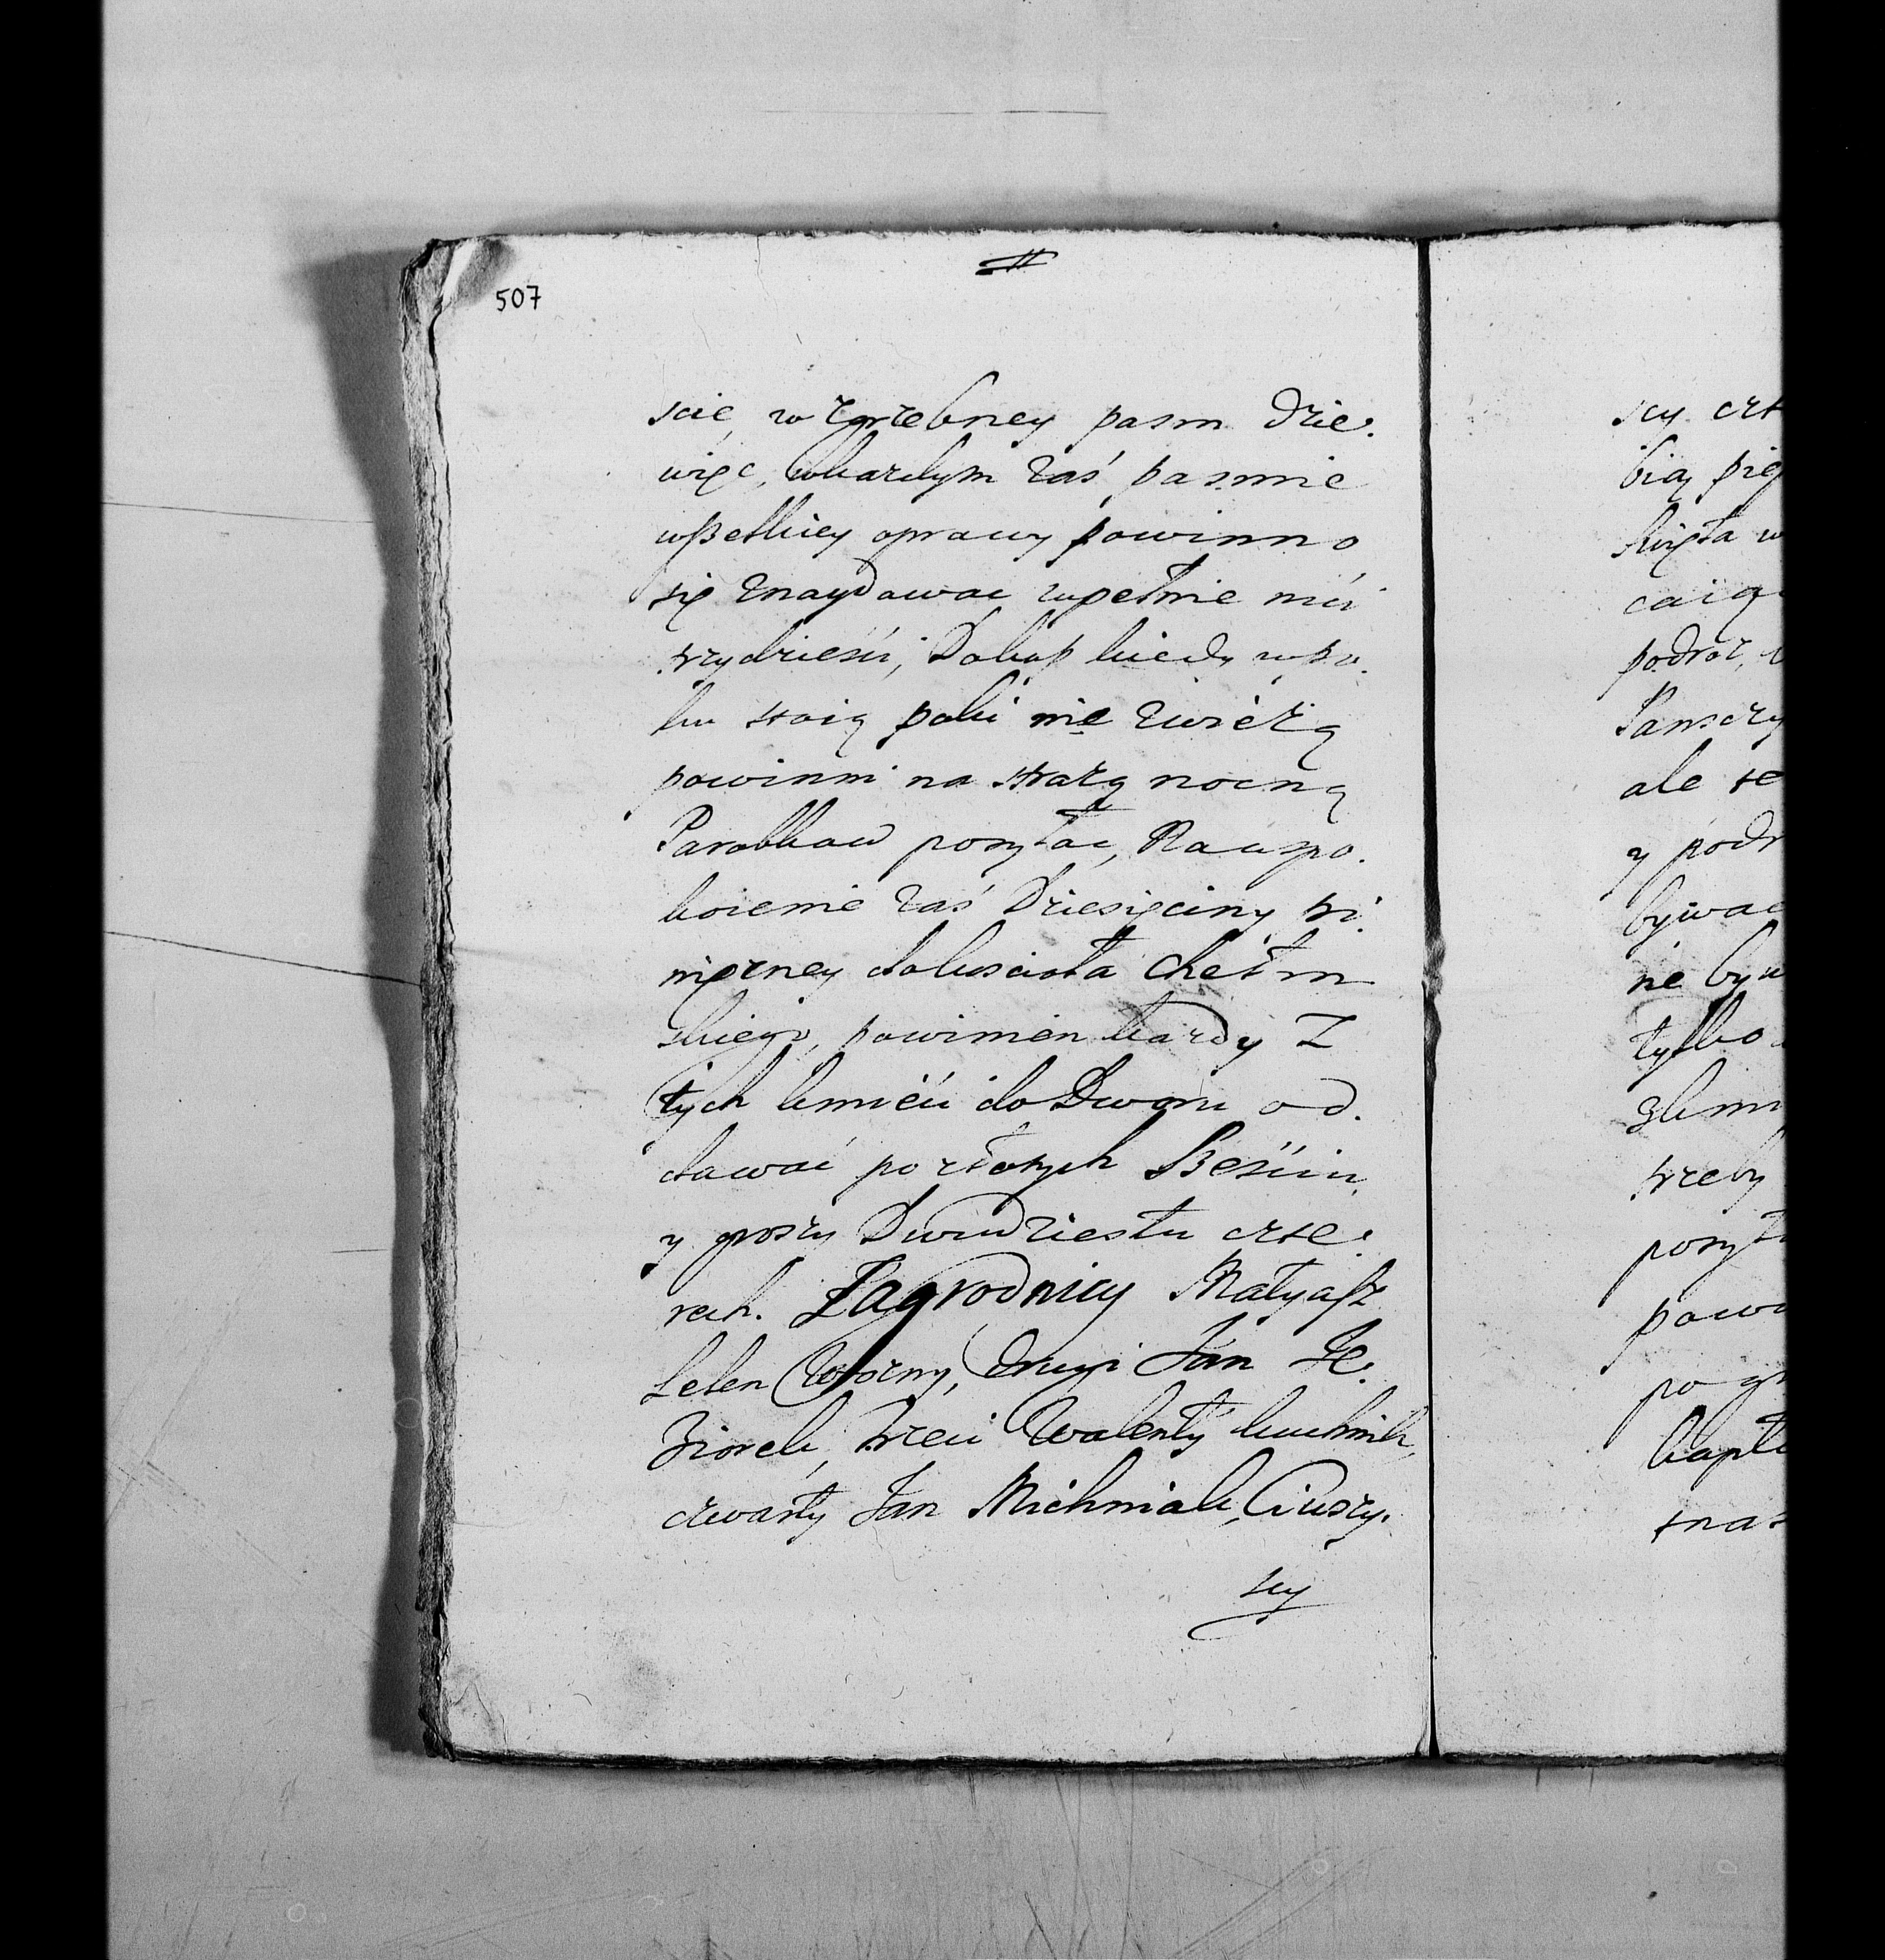 507
scie, w zgrzebney pasm dzie.
więc, wkazdym zaś pasmie
wszelkiey oprawy powinno
się znaydowac zupełnie nici
trzydzieści, Dokąp kiedy wpo.
lu stoią poki nie zwiezą
powinni na strazą nocną
Parobkow posyłac, Na uspo.
koienie zaś Dziesięciny pi.
nięzney do kościoła Chełm
skiego, powinien kazdy Z
tych kmieci do Dworu od.
dawać po złotych Sześciu,
y groszy Dwudziestu czte.
rech. Zagrodnicy Matyasz
Lelen Wozny, drugi Jan Je.
ziorek, trzeci Walenty kuchnik,
czwarty Jan Michniak, Ci wszy.
scy
scy czt
bią pię
święta w
caią
podroz,
Panszczy
ale se
y podr
bywac
nie byw
tylko
trzeby
posył
powi
po gr
kapł